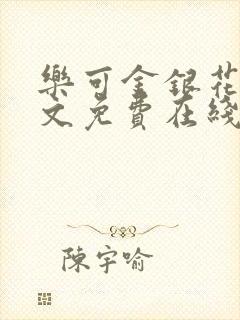 樂可金銀花
文免費在綫
陳宇喻